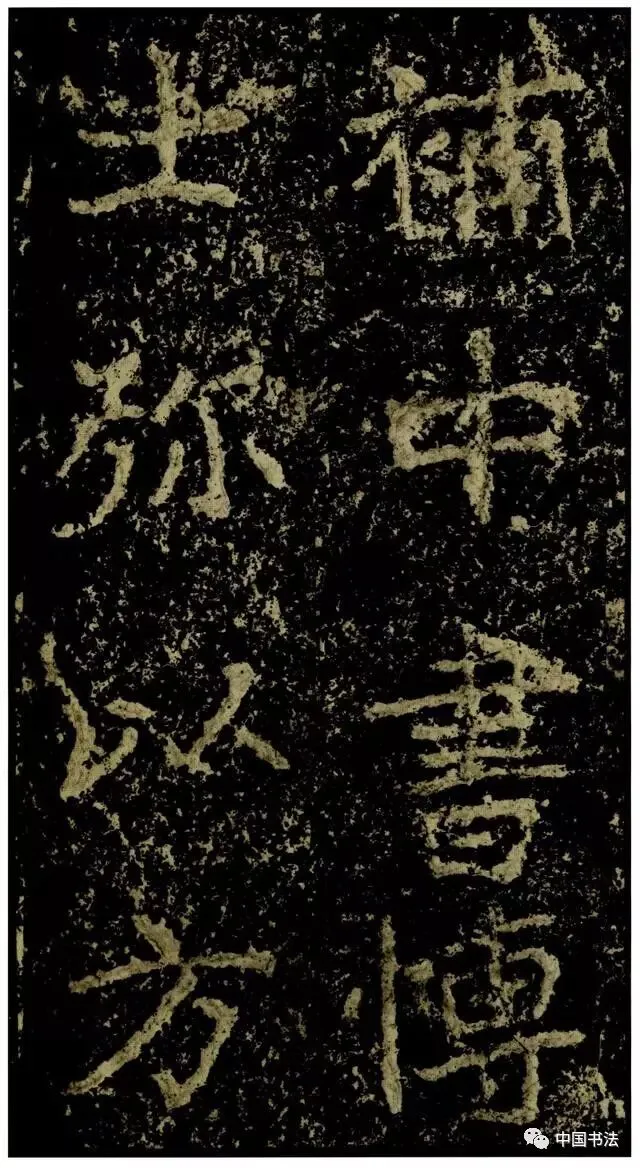 補中書博
士弥以方
中国书法